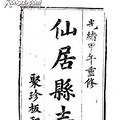 光緒甲午重修
仙居縣志
聚珍板